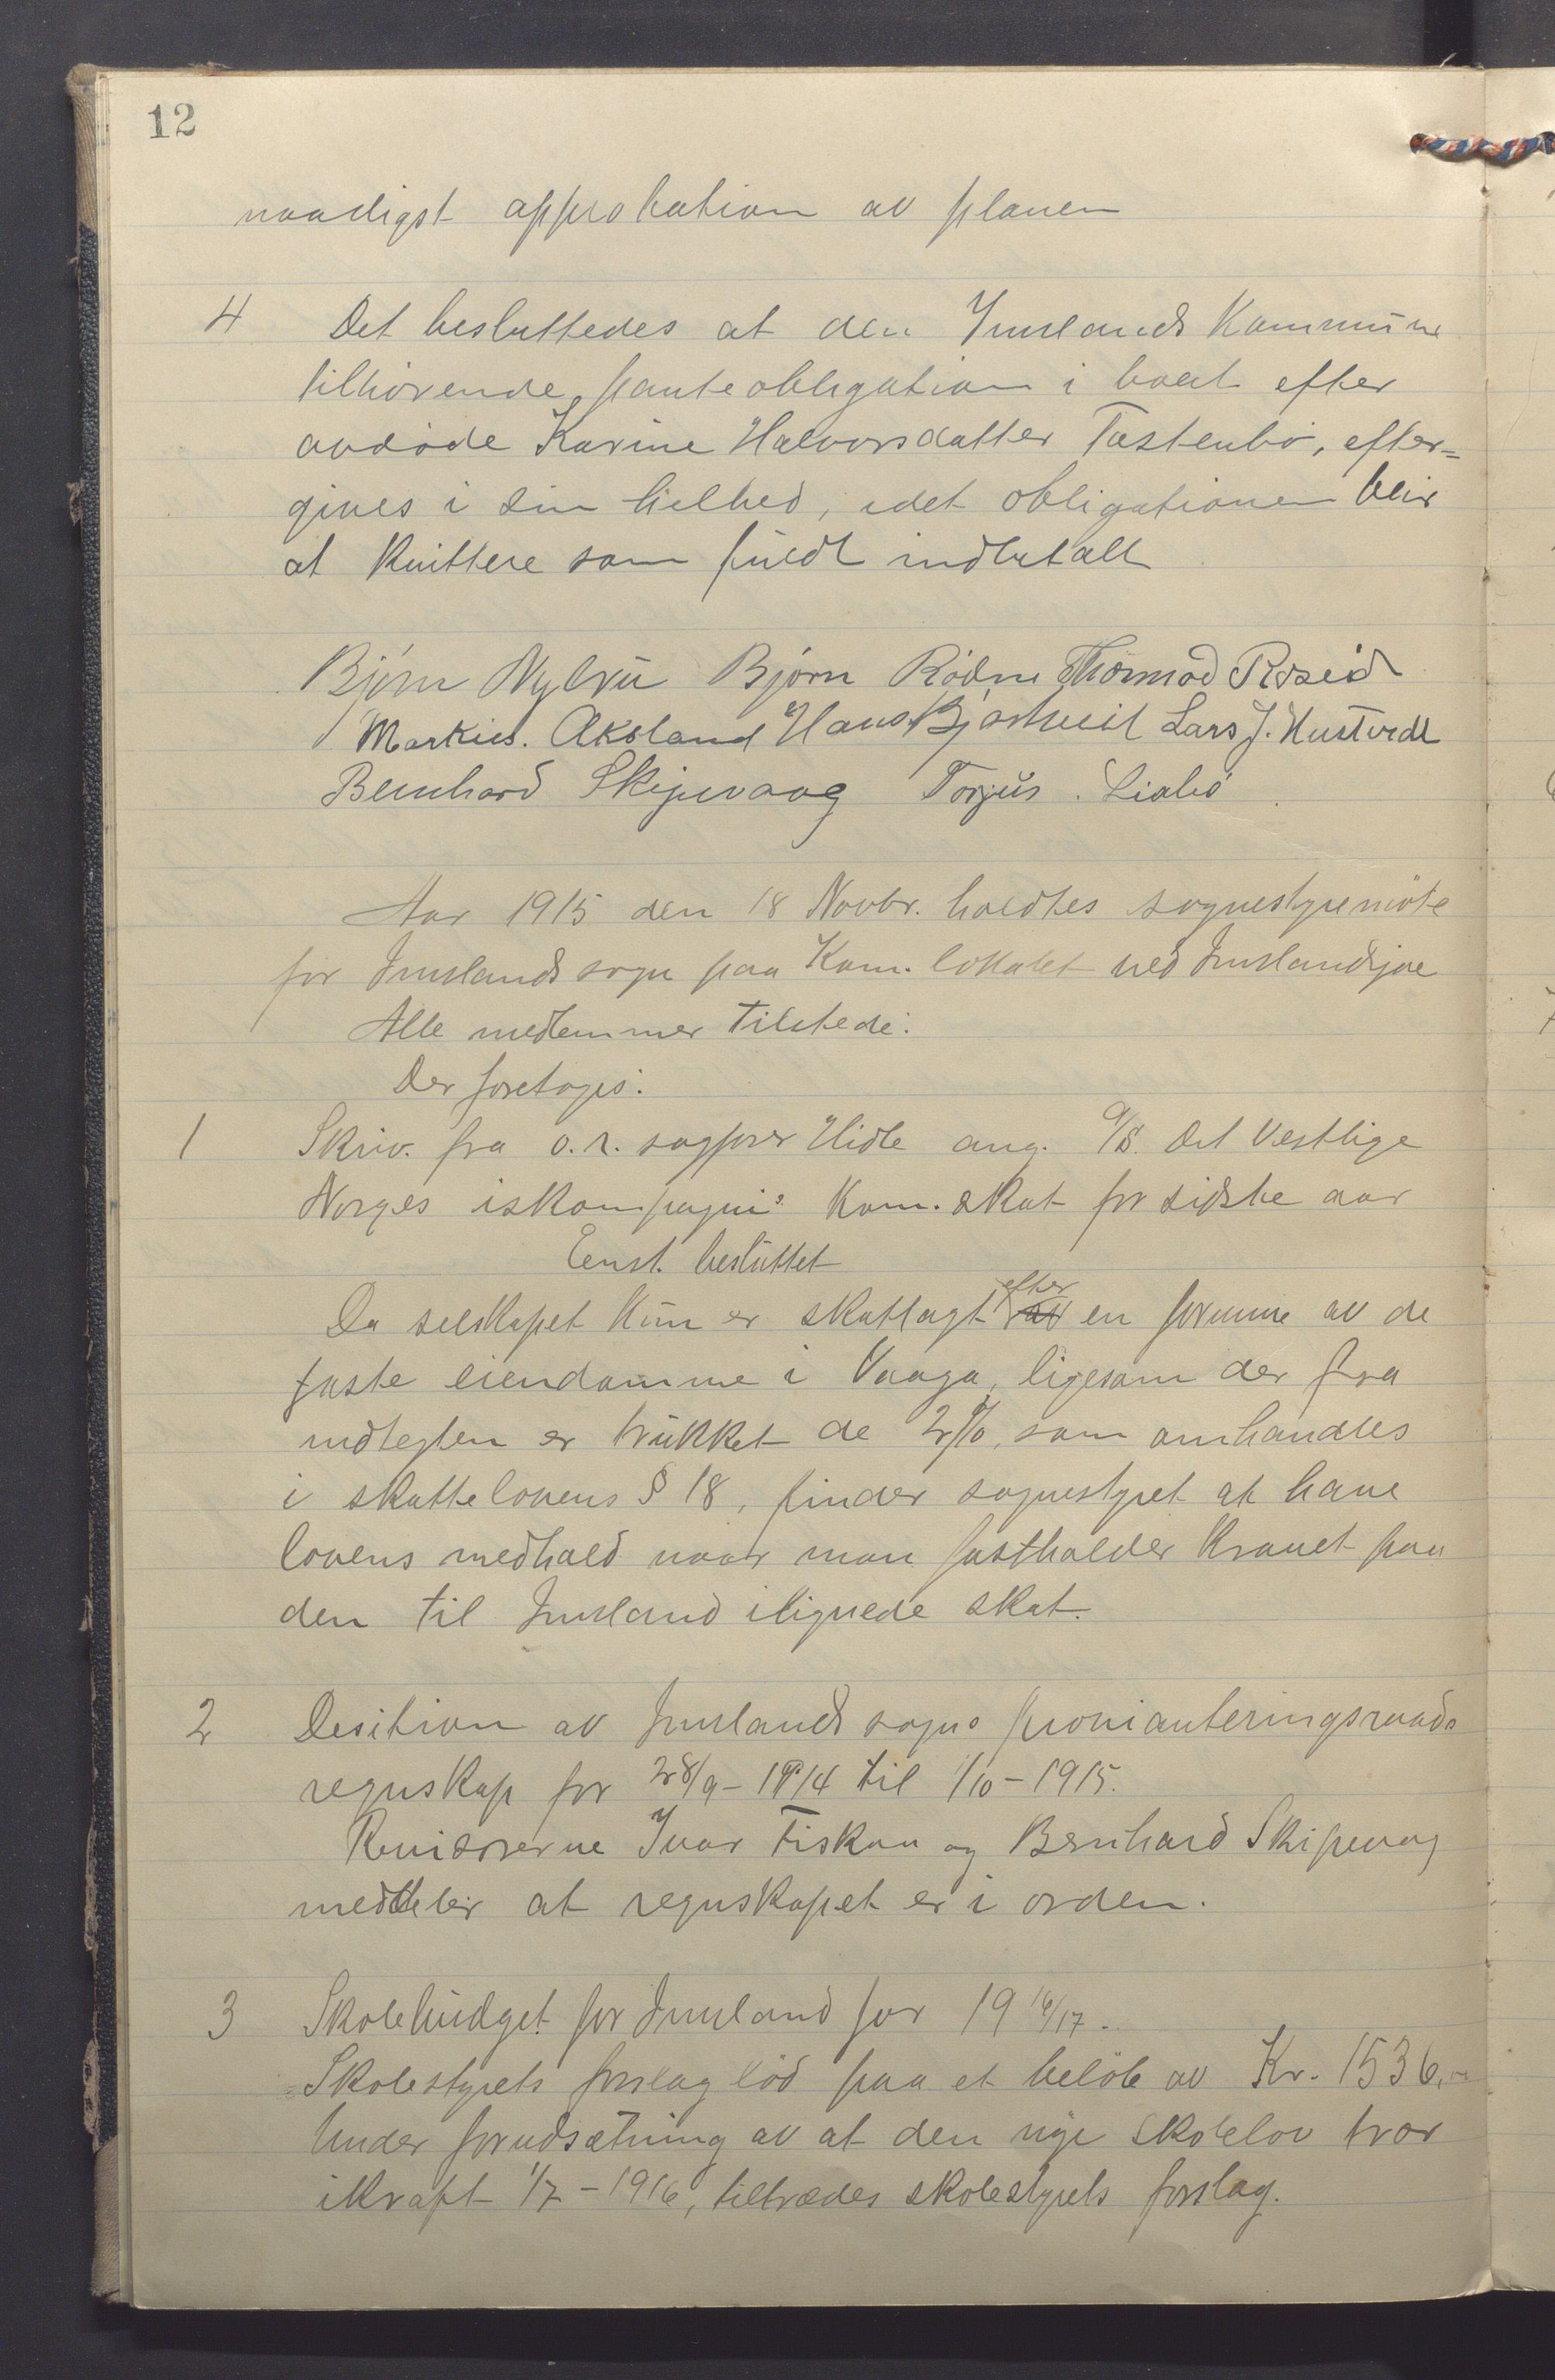 12
naadigst approbation av planen
4 Det besluttedes at den Imslands Kommune
tilhörende panteobligation i boet efter
avdöde Karine Halvorsdatter Tastenbö, efter=
gives i sin helhed, idet obligationen blir
at kvittere som fuldt indbetalt
Björn Nylrü Björn Rödne Thormod Röseid
Markus. Aksland Hans Bjastveit Lars J. Hustvedt
Bernhard Skipevaag Torjus. Liabö
Aar 1915 den 18 Novbr. holdtes sognestyremöte
for Imslands sogn paa Kom. lokalet ved Imslandsjøe
Alle medlemmer tilstede:
Der foretoges:
1 Skriv. fra o.r. sagfører Hidle ang. A/S. Det Vestlige
Norges iskompagnis Kom. skat for sidste aar
Enst. besluttet
Da selskapet kun er skatlagt efter av en formue av de
faste eiendomme i Vaaga, ligesom der fra
indtegten er trukket de 2%, som omhandles
i skattelovens § 18, finder sognestyret at have
lovens medhold naar man fastholder kravet paa
den til Imsland ilignede skat.
2 Desition av Imslands sogns provianteringsraads
regnskap for 28/9 - 1914 til 1/10 - 1915.
Revisorerne Ivar Fiskaa og Bernhard Skipevag
meddeler at regnskapet er i orden.
3 Skolebudget for Imsland for 19 16/17.
Skolestyrets forslag löd paa et belöb av Kr. 1536,-
Under forudsætning av at den nye skolelov trær
ikraft 1/7 - 1916, tiltrædes skolestyrets forslag.